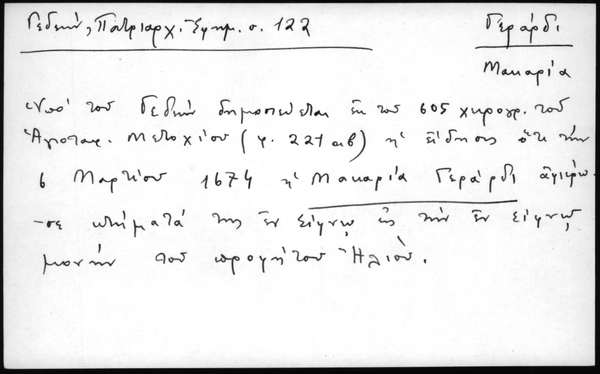 Γεδεών, Πατριαρχ. Ἐφημ. σ. 122
Γεράρδι
Μακαρία
Ὑπὸ τοῦ Γεδεὼν δημοσιεύεται ἐκ τοῦ 605 χειρογρ. τοῦ
Ἁγιοταφ. Μετοχίου (φ. 221 αβ) ἡ εἴδησις ὅτι τὴν
6 Μαρτίου 1674 ἡ Μακαρία Γεράρδι ἀφιέρω-
-σε κτήματά της ἐν Σίφνῳ εἰς τὴν ἐν Σίφνῳ
μονὴν τοῦ προφήτου Ἠλιού.